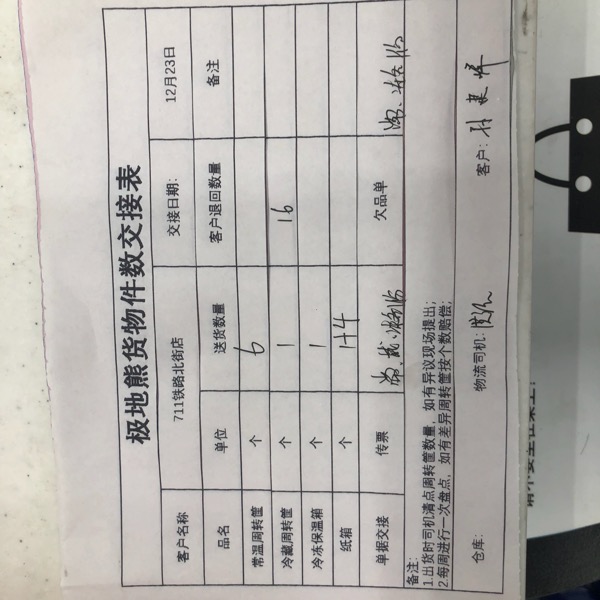 极地熊货物件数交接表
客户名称 711铁路北街店 交接日期: 12月23日
品名 单位 送货数量 客户退回数量 备注
常温周转筐 个 6
冷藏周转筐 个 1 16
冷冻保温箱 个 1
纸箱 个 1+4
单据交接 传票 欠品单
备注:
1.出货时司机清点周转筐数量,如有异议现场提出;
2.每周进行一次盘点,如有差异周转筐按个数赔偿;
仓库: 物流司机: 客户: